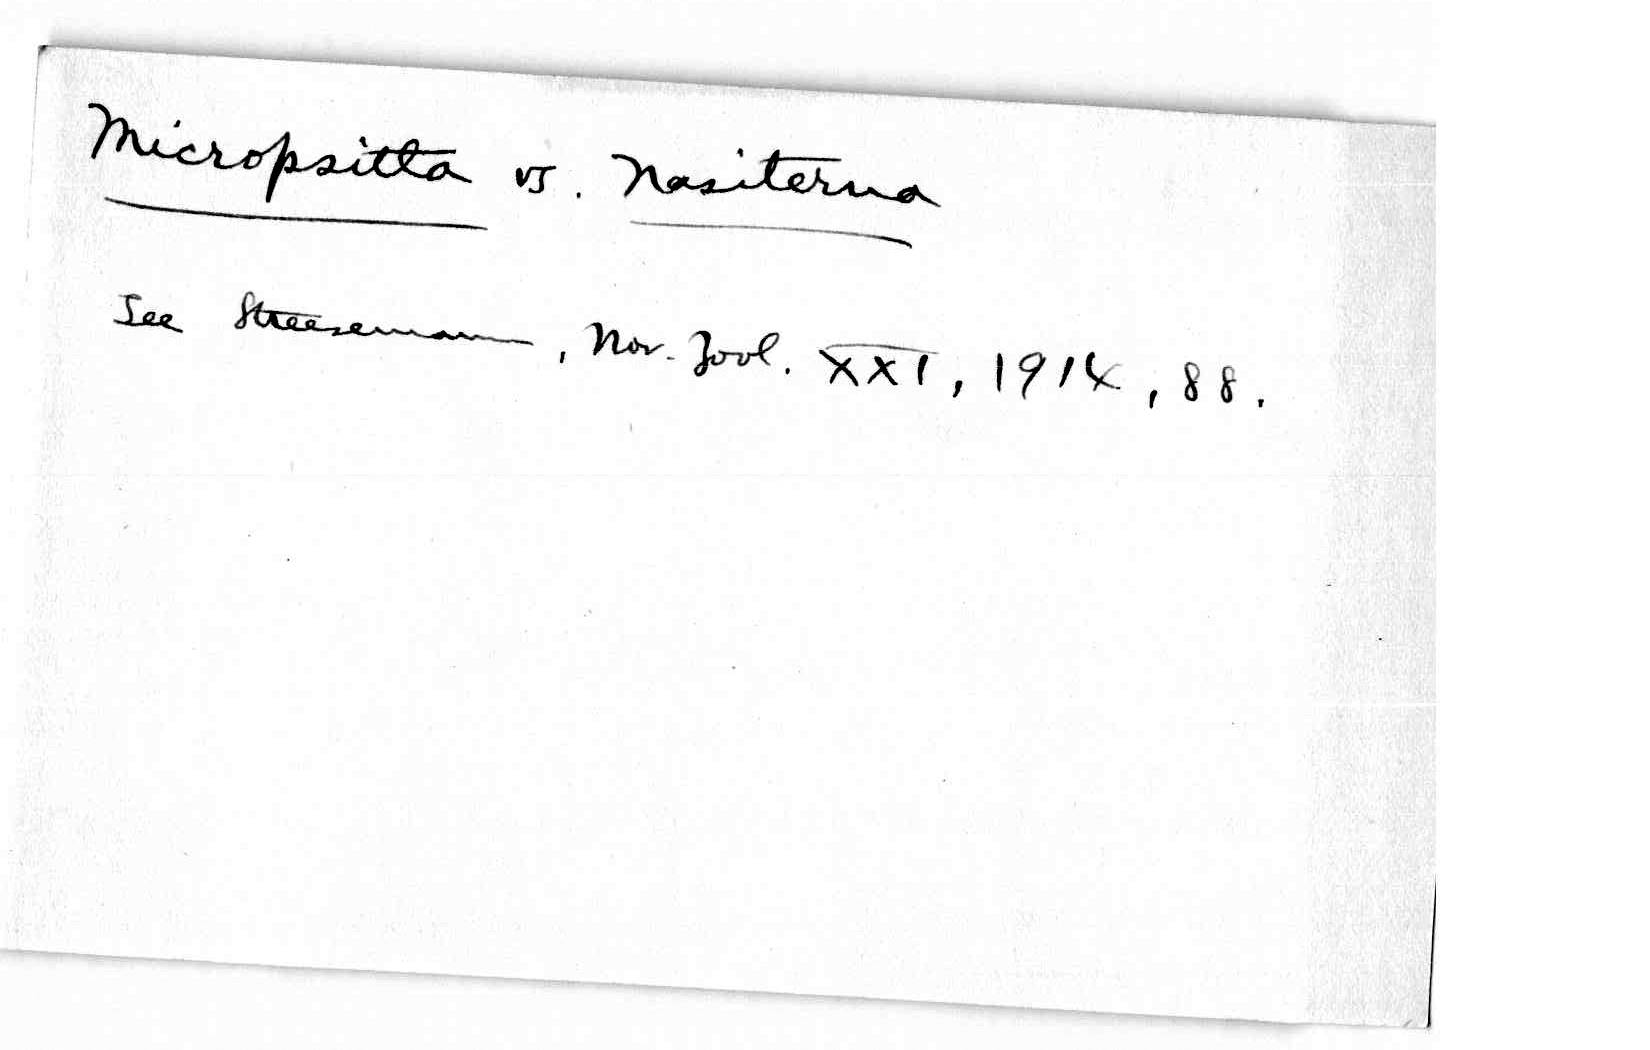 Micropsitta vs. Nasiterna
See Streesemann, Nov. Zool. XXI, 1914, 88.